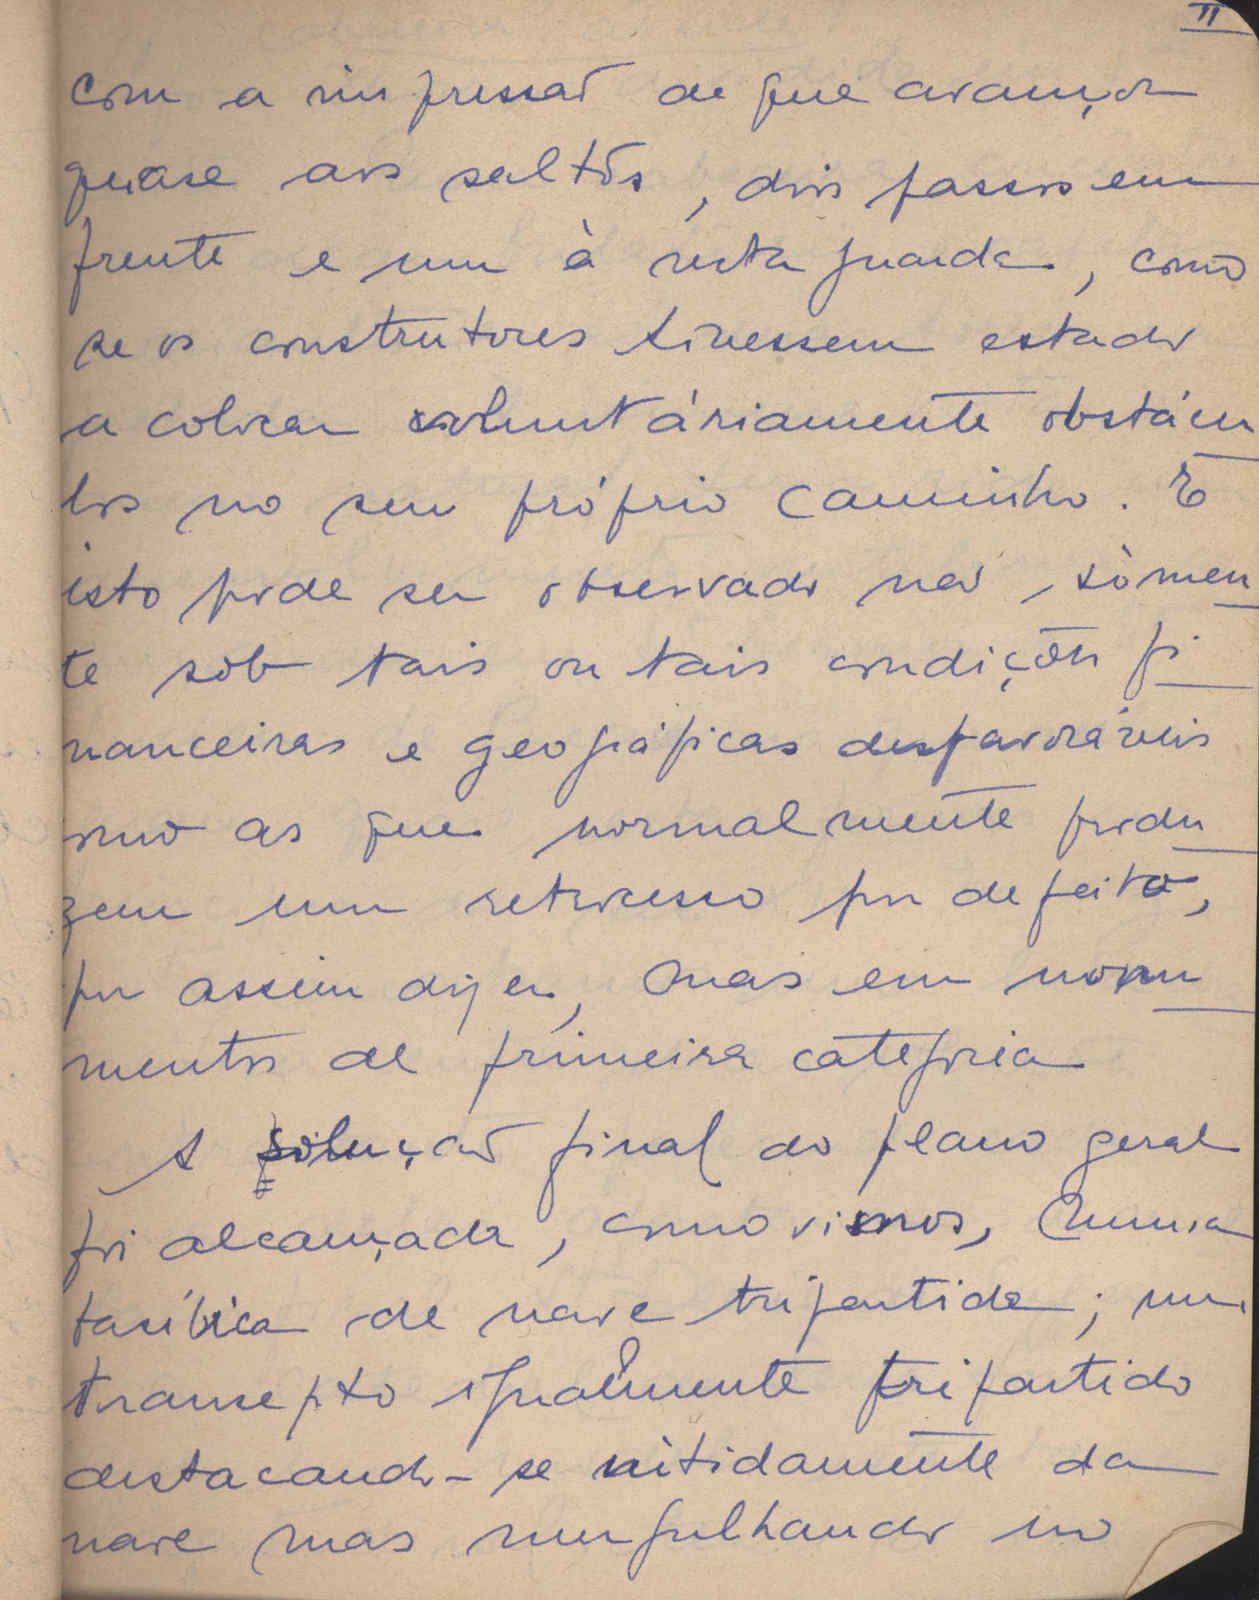 11
com a impressão de que avançou
quase aos saltos, dois passos em
frente e um à rectaguarda, como
se os construtores tivessem estado
a colocar voluntáriamente obstácu
los no seu próprio caminho. E
isto pode ser observado não, sòmen
te sob tais ou tais condições fi
nanceiras e geográficas desfavoráveis
como as que normalmente produ
zem um retrocesso por defeito,
por assim dizer, mas em monu
mentos de primeira categoria
A solução final do plano geral
foi alcançada, como vimos, numa
basílica de nave tripartida; um
transepto igualmente tripartido
destacando-se nitidamente da
nave mas mergulhando no